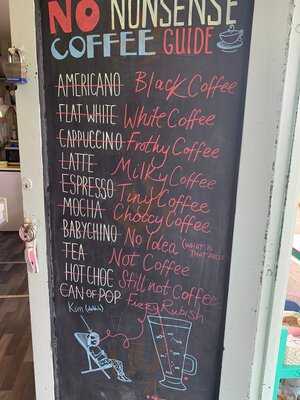 NO NONSENSE
COFFEE GUIDE
AMERICANO Black Coffee
FLAT WHITE White Coffee
CAPPUCCINO Frothy Coffee
LATTE Milky Coffee
ESPRESSO Tiny Coffee
MOCHA Choccy Coffee
BABYCHINO No Idea (WHAT IS THAT
TEA Not Coffee
HOT CHOC Still not Coffee
CAN OF POP Fizzy Rubish
Kim